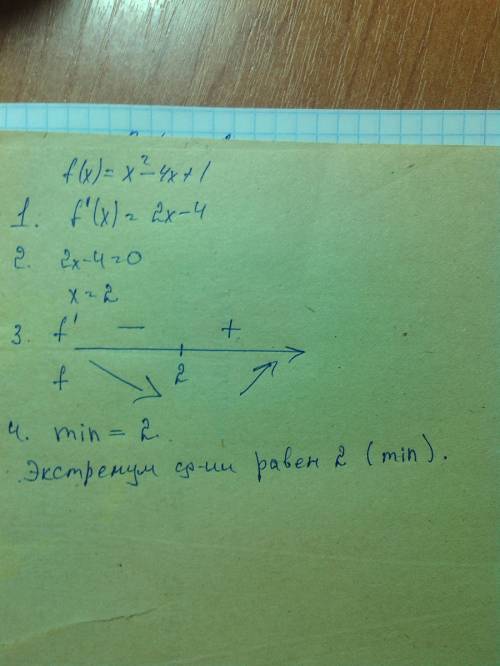 f(x) = x² - 4x + 1
1. f'(x) = 2x - 4
2. 2x - 4 = 0
x = 2
3. f' — +
f 2
4. min = 2.
Экстренум ф-ии равен 2 (min).